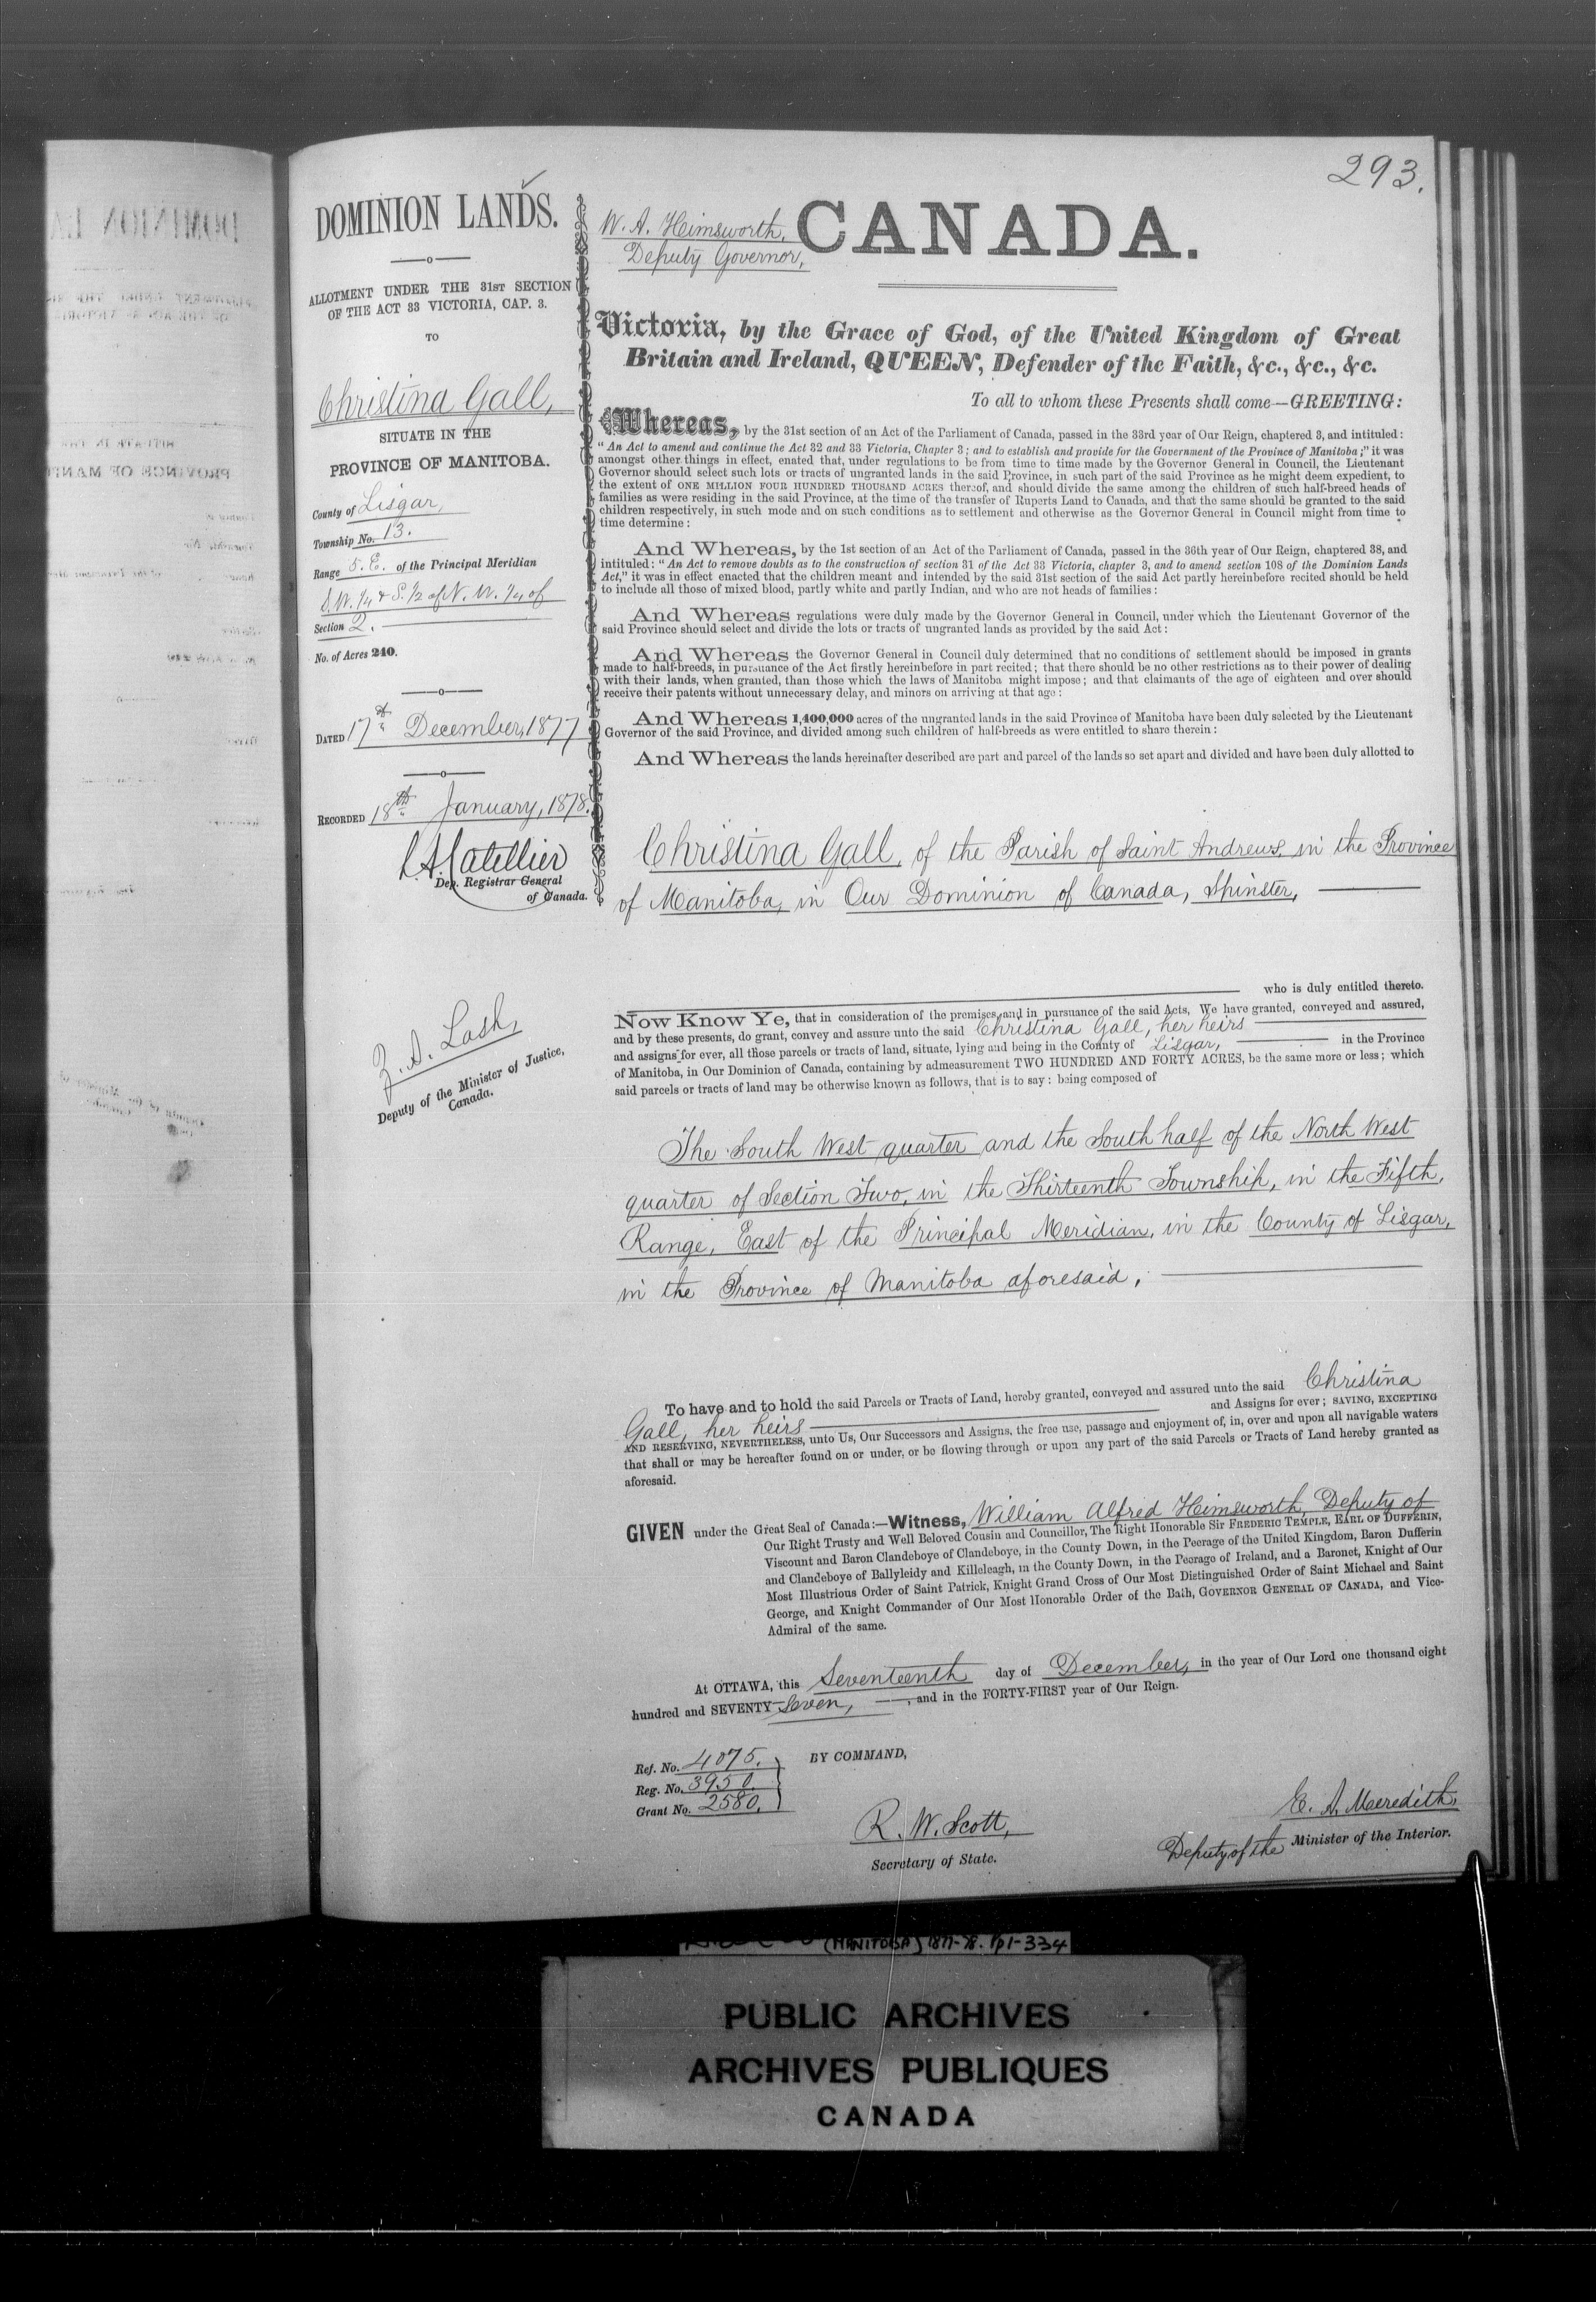 293.
DOMINION LANDS.
ALLOTMENT UNDER THE 31ST SECTION
OF THE ACT 33 VICTORIA, CAP. 3.
TO
Christina Gall,
SITUATE IN THE
PROVINCE OF MANITOBA.
County of Lisgar,
Township No. 13.
Range 5. E. of the Principal Meridian
S. W. 1/4 & S. 1/2 of N. W. 1/4 of
Section 2.
No. of Acres 240.
DATED 17th December, 1877
RECORDED 18th January, 1878.
Dep. Registrar General
of Canada.
Z. A. Lash,
Deputy of the Minister of Justice,
Canada.
W. A. Heimsworth,
Deputy Governor,
CANADA.
Victoria, by the Grace of God, of the United Kingdom of Great
Britain and Ireland, QUEEN, Defender of the Faith, &c., &c., &c.
To all to whom these Presents shall come—GREETING:
Whereas, by the 31st section of an Act of the Parliament of Canada, passed in the 33rd year of Our Reign, chaptered 3, and intituled:
"An Act to amend and continue the Act 32 and 33 Victoria, Chapter 3; and to establish and provide for the Government of the Province of Manitoba;" it was
amongst other things in effect, enated that, under regulations to be from time to time made by the Governor General in Council, the Lieutenant
Governor should select such lots or tracts of ungranted lands in the said Province, in such part of the said Province as he might deem expedient, to
the extent of ONE MILLION FOUR HUNDRED THOUSAND ACRES thereof, and should divide the same among the children of such half-breed heads of
families as were residing in the said Province, at the time of the transfer of Ruperts Land to Canada, and that the same should be granted to the said
children respectively, in such mode and on such conditions as to settlement and otherwise as the Governor General in Council might from time to
time determine:
And Whereas, by the 1st section of an Act of the Parliament of Canada, passed in the 36th year of Our Reign, chaptered 38, and
intituled: "An Act to remove doubts as to the construction of section 31 of the Act 33 Victoria, chapter 3, and to amend section 108 of the Dominion Lands
Act," it was in effect enacted that the children meant and intended by the said 31st section of the said Act partly hereinbefore recited should be held
to include all those of mixed blood, partly white and partly Indian, and who are not heads of families:
And Whereas regulations were duly made by the Governor General in Council, under which the Lieutenant Governor of the
said Province should select and divide the lots or tracts of ungranted lands as provided by the said Act:
And Whereas the Governor General in Council duly determined that no conditions of settlement should be imposed in grants
made to half-breeds, in pursuance of the Act firstly hereinbefore in part recited; that there should be no other restrictions as to their power of dealing
with their lands, when granted, than those which the laws of Manitoba might impose; and that claimants of the age of eighteen and over should
receive their patents without unnecessary delay, and minors on arriving at that age:
And Whereas 1,400,000 acres of the ungranted lands in the said Province of Manitoba have been duly selected by the Lieutenant
Governor of the said Province, and divided among such children of half-breeds as were entitled to share therein:
And Whereas the lands hereinafter described are part and parcel of the lands so set apart and divided and have been duly allotted to
Christina Gall, of the Parish of Saint Andrews, in the Province
of Manitoba, in Our Dominion of Canada, Spinster,
who is duly entitled thereto.
Now Know Ye, that in consideration of the premises, and in pursuance of the said Acts, We have granted, conveyed and assured,
and by these presents, do grant, convey and assure unto the said Christina Gall, her heirs
and assigns for ever, all those parcels or tracts of land, situate, lying and being in the County of Lisgar, in the Province
of Manitoba, in Our Dominion of Canada, containing by admeasurement TWO HUNDRED AND FORTY ACRES, be the same more or less; which
said parcels or tracts of land may be otherwise known as follows, that is to say: being composed of
The South West quarter and the South half of the North West
quarter of Section Two, in the Thirteenth Township, in the Fifth,
Range, East of the Principal Meridian, in the County of Lisgar,
in the Province of Manitoba aforesaid,
To have and to hold the said Parcels or Tracts of Land, hereby granted, conveyed and assured unto the said Christina
Gall, her heirs and Assigns for ever; SAVING, EXCEPTING
AND RESERVING, NEVERTHELESS, unto Us, Our Successors and Assigns, the free use, passage and enjoyment of, in, over and upon all navigable waters
that shall or may be hereafter found on or under, or be flowing through or upon any part of the said Parcels or Tracts of Land hereby granted as
aforesaid.
GIVEN under the Great Seal of Canada:—Witness, William Alfred Heimsworth, Deputy of
Our Right Trusty and Well Beloved Cousin and Councillor, The Right Honorable Sir FREDERIC TEMPLE, EARL OF DUFFERIN,
Viscount and Baron Clandeboye of Clandeboye, in the County Down, in the Peerage of the United Kingdom, Baron Dufferin
and Clandeboye of Ballyleidy and Killeleagh, in the County Down, in the Peerage of Ireland, and a Baronet, Knight of Our
Most Illustrious Order of Saint Patrick, Knight Grand Cross of Our Most Distinguished Order of Saint Michael and Saint
George, and Knight Commander of Our Most Honorable Order of the Bath, GOVERNOR GENERAL OF CANADA, and Vice-
Admiral of the same.
At OTTAWA, this Seventeenth day of December, in the year of Our Lord one thousand eight
hundred and SEVENTY-Seven, and in the FORTY-FIRST year of Our Reign.
Ref. No. 4075.
Reg. No. 3950.
Grant No. 2580.
BY COMMAND,
R. W. Scott,
Secretary of State.
E. A. Meredith,
Deputy of the Minister of the Interior.
(MANITOBA) 1877-78. Pp1-334
PUBLIC ARCHIVES
ARCHIVES PUBLIQUES
CANADA